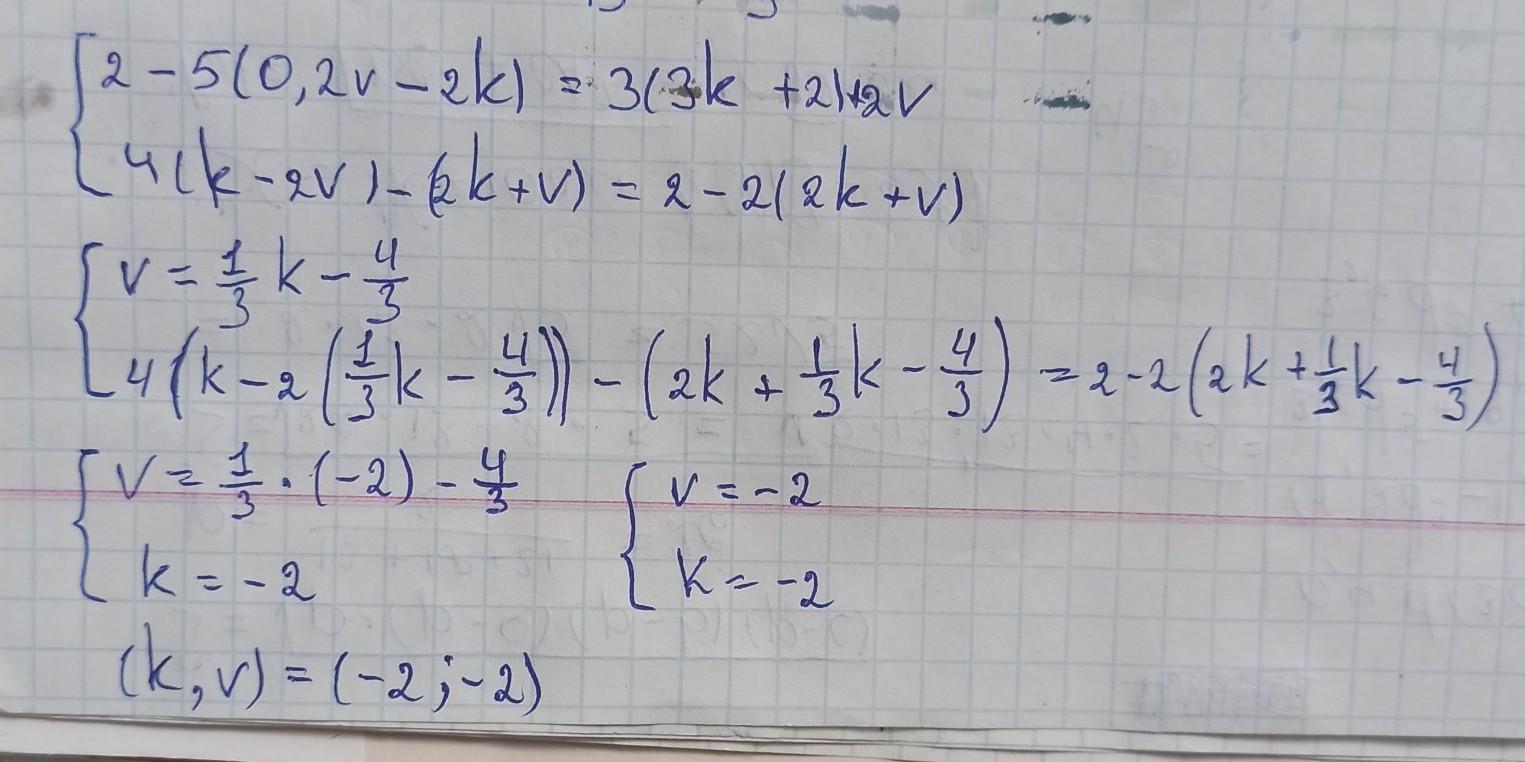 2 - 5(0,2v - 2k) = 3(3k + 2) + 2v
4(k - 2v) - (2k + v) = 2 - 2(2k + v)
v = 1/3 k - 4/3
4(k - 2(1/3 k - 4/3)) - (2k + 1/3 k - 4/3) = 2 - 2(2k + 1/3 k - 4/3)
v = 1/3 · (-2) - 4/3 v = -2
k = -2 k = -2
(k, v) = (-2; -2)